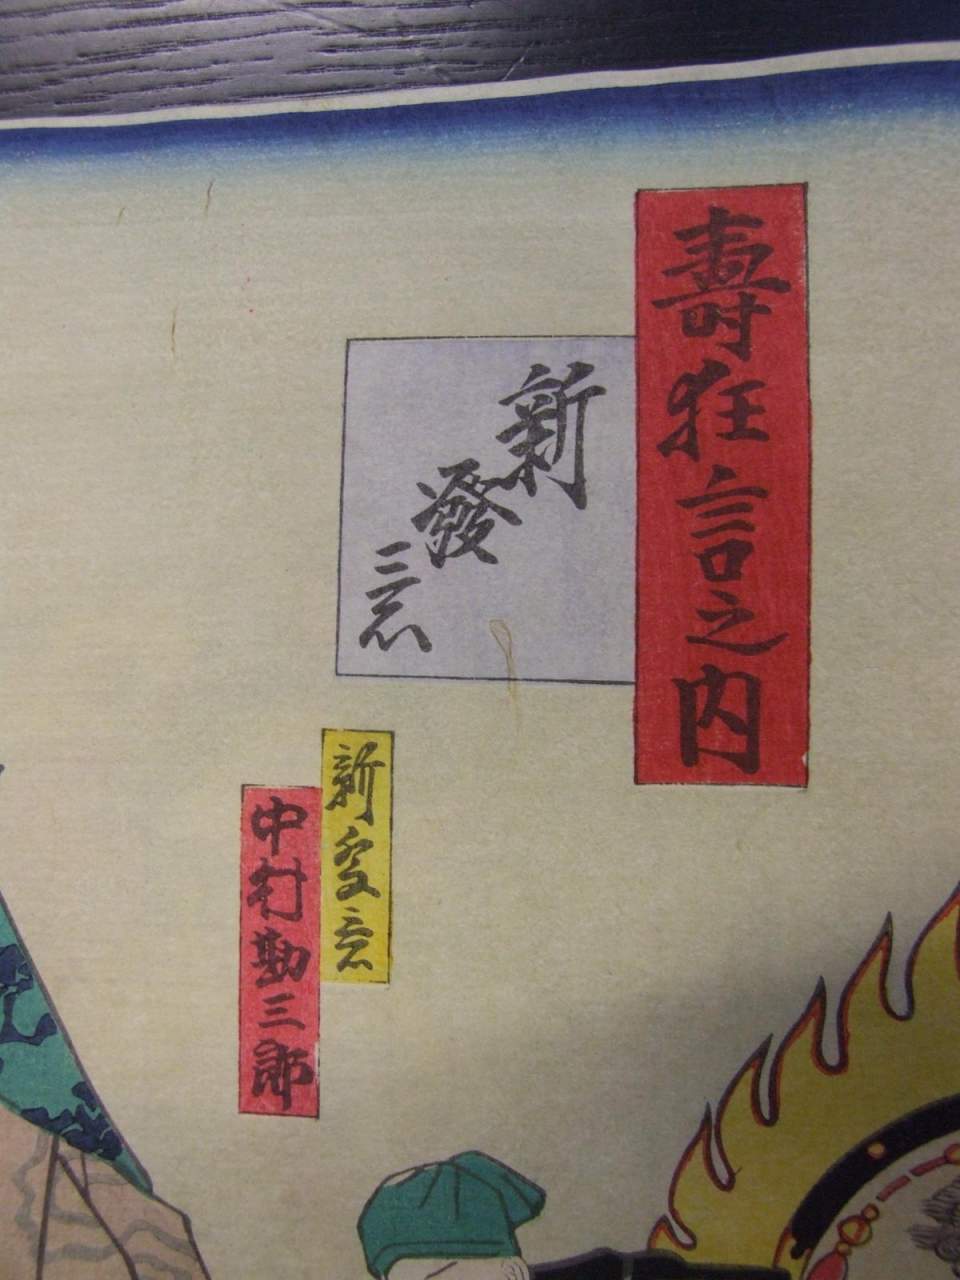 壽狂言之内
新發意
新発意
中村勘三郎